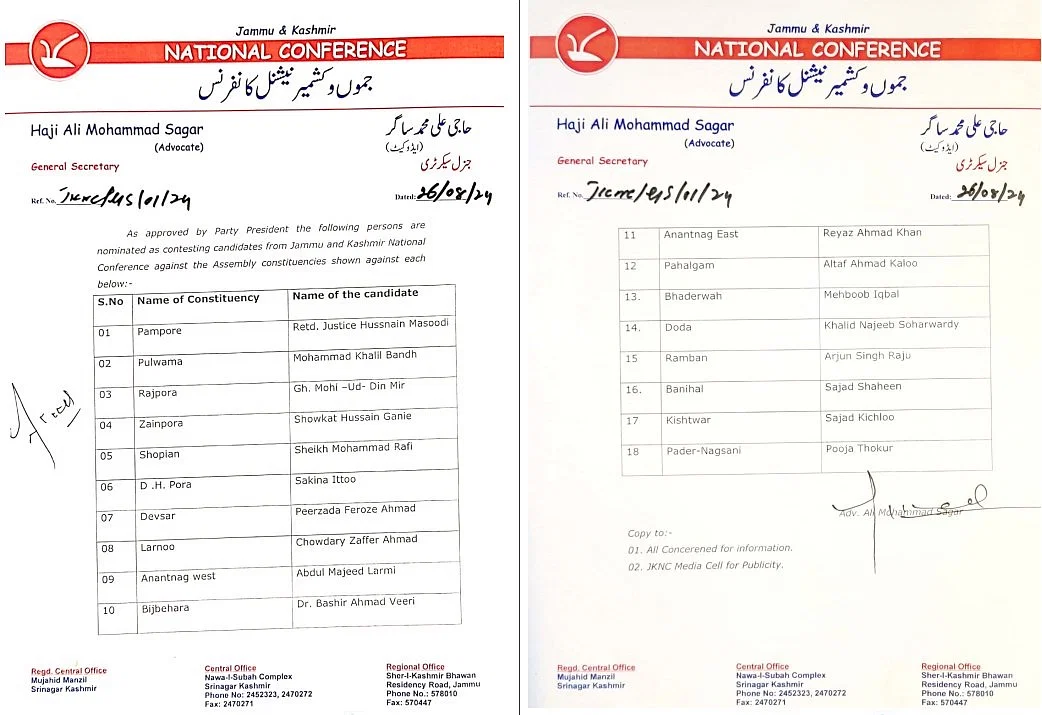 Jammu & Kashmir
NATIONAL CONFERENCE
جموں و کشمیر نیشنل کانفرنس
Haji Ali Mohammad Sagar حاجی علی محمد ساگر
(Advocate) (ایڈوکیٹ)
General Secretary جنرل سیکرٹری
Ref. No. Dated: 26/08/24
As approved by Party President the following persons are
nominated as contesting candidates from Jammu and Kashmir National
Conference against the Assembly constituencies shown against each
below:-
S.No Name of Constituency Name of the candidate
01 Pampore Retd. Justice Hussnain Masoodi
02 Pulwama Mohammad Khalil Bandh
03 Rajpora Gh. Mohi –Ud- Din Mir
04 Zainpora Showkat Hussain Ganie
05 Shopian Sheikh Mohammad Rafi
06 D .H. Pora Sakina Ittoo
07 Devsar Peerzada Feroze Ahmad
08 Larnoo Chowdary Zaffer Ahmad
09 Anantnag west Abdul Majeed Larmi
10 Bijbehara Dr. Bashir Ahmad Veeri
Regd. Central Office
Mujahid Manzil
Srinagar Kashmir
Central Office
Nawa-I-Subah Complex
Srinagar Kashmir
Phone No: 2452323, 2470272
Fax: 2470271
Regional Office
Sher-I-Kashmir Bhawan
Residency Road, Jammu
Phone No.: 578010
Fax: 570447
Jammu & Kashmir
NATIONAL CONFERENCE
جموں و کشمیر نیشنل کانفرنس
Haji Ali Mohammad Sagar حاجی علی محمد ساگر
(Advocate) (ایڈوکیٹ)
General Secretary جنرل سیکرٹری
Ref. No. Dated: 26/08/24
11 Anantnag East Reyaz Ahmad Khan
12 Pahalgam Altaf Ahmad Kaloo
13. Bhaderwah Mehboob Iqbal
14. Doda Khalid Najeeb Soharwardy
15 Ramban Arjun Singh Raju
16. Banihal Sajad Shaheen
17 Kishtwar Sajad Kichloo
18 Pader-Nagsani Pooja Thokur
Adv. Ali Mohammad Sagar
Copy to:-
01. All Concerened for information.
02. JKNC Media Cell for Publicity.
Regd. Central Office
Mujahid Manzil
Srinagar Kashmir
Central Office
Nawa-I-Subah Complex
Srinagar Kashmir
Phone No: 2452323, 2470272
Fax: 2470271
Regional Office
Sher-I-Kashmir Bhawan
Residency Road, Jammu
Phone No.: 578010
Fax: 570447